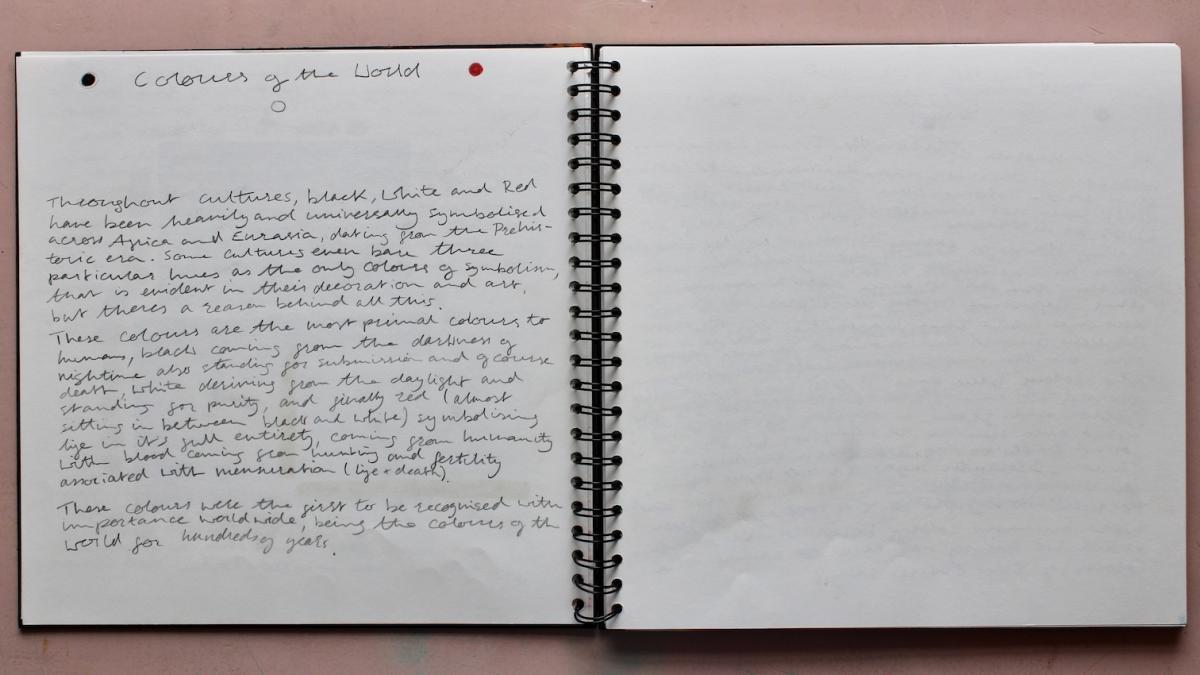 Colours of the World
Throughout cultures, black, white and Red
have been heavily and universally symbolised
across Africa and Eurasia, dating from the Prehis-
toric era. Some cultures even bare three
particular hues as the only colours of symbolism,
that is evident in their decoration and art,
but theres a reason behind all this.
These colours are the most primal colours to
humans, black coming from the darkness of
nightime also standing for submission and of course
death, white deriving from the daylight and
standing for purity, and finally red (almost
sitting in between black and white) symbolising
life in it's full entirety, coming from humanity
with blood coming from hunting and fertility
associated with mensuration (life + death).
These colours were the first to be recognised with
importance worldwide, being the colours of th
world for hundreds of years.